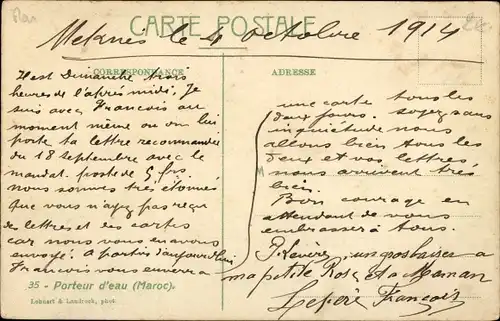 CARTE POSTALE
Meknès le 4 octobre 1914
CORRESPONDANCE
Il est Dimanche trois
heures de l'après midi. Je
suis avec François au
moment même ou on lui
porte ta lettre recommandée
du 18 septembre avec le
mandat. poste de 5 frs.
nous sommes très étonnés
que vous n'ayez pas reçu
de lettres et des cartes
car nous vous en avons
envoyé. A partir d'aujourd'hui
François vous enverra
ADRESSE
une carte tous les
deux jours. soyez sans
inquiétude nous
allons bien tous les
deux et vos lettres
nous arrivent très
bien.
Bon courage en
attendant de vous
embrasser à tous.
un gros baiser a
ma petite Rose et a Maman
François
35 - Porteur d'eau (Maroc).
Lehnert & Landrock, phot.